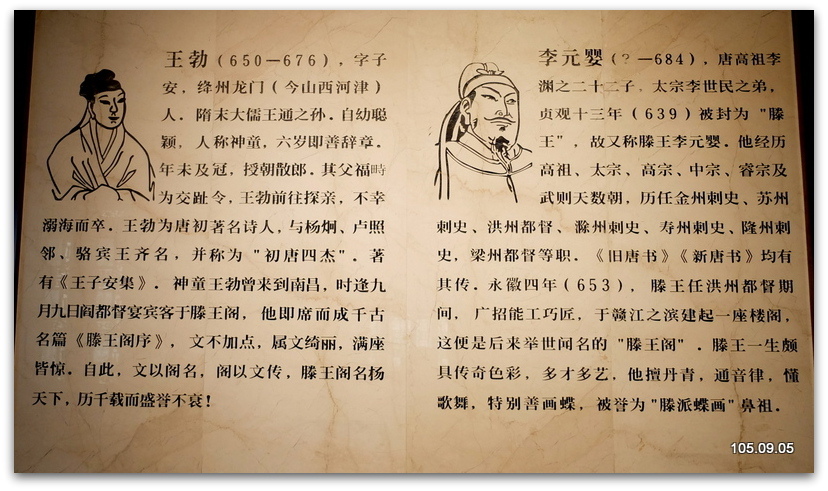 王勃（650—676），字子
安，绛州龙门（今山西河津）
人．隋末大儒王通之孙．自幼聪
颖，人称神童，六岁即善辞章．
年未及冠，授朝散郎．其父福畤
为交趾令，王勃前往探亲，不幸
溺海而卒．王勃为唐初著名诗人，与杨炯、卢照
邻、骆宾王齐名，并称为"初唐四杰"．著
有《王子安集》．神童王勃曾来到南昌，时逢九
月九日阎都督宴宾客于滕王阁，他即席而成千古
名篇《滕王阁序》，文不加点，属文绮丽，满座
皆惊．自此，文以阁名，阁以文传，滕王阁名杨
天下，历千载而盛誉不衰！
李元婴（？—684），唐高祖李
渊之二十二子．太宗李世民之弟，
贞观十三年（639）被封为"滕
王"，故又称滕王李元婴．他经历
高祖、太宗、高宗、中宗、睿宗及
武则天数朝，历任金州刺史、苏州
刺史、洪州都督、滁州刺史、寿州刺史、隆州刺
史，梁州都督等职．《旧唐书》《新唐书》均有
其传．永徽四年（653），滕王任洪州都督期
间，广招能工巧匠，于赣江之滨建起一座楼阁，
这便是后来举世闻名的"滕王阁"．滕王一生颇
具传奇色彩，多才多艺．他擅丹青，通音律，懂
歌舞，特别善画蝶，被誉为"滕派蝶画"鼻祖．
105.09.05